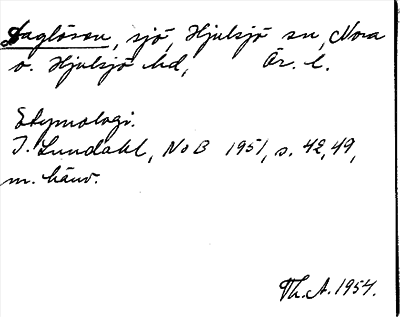 Daglösen, sjö, Hjulsjö sn, Nora
o. Hjulsjö hd, Ör. l.
Etymologi.
I. Lundahl, NoB 1951, s. 42, 49,
m. hänv.
Th. A. 1954.